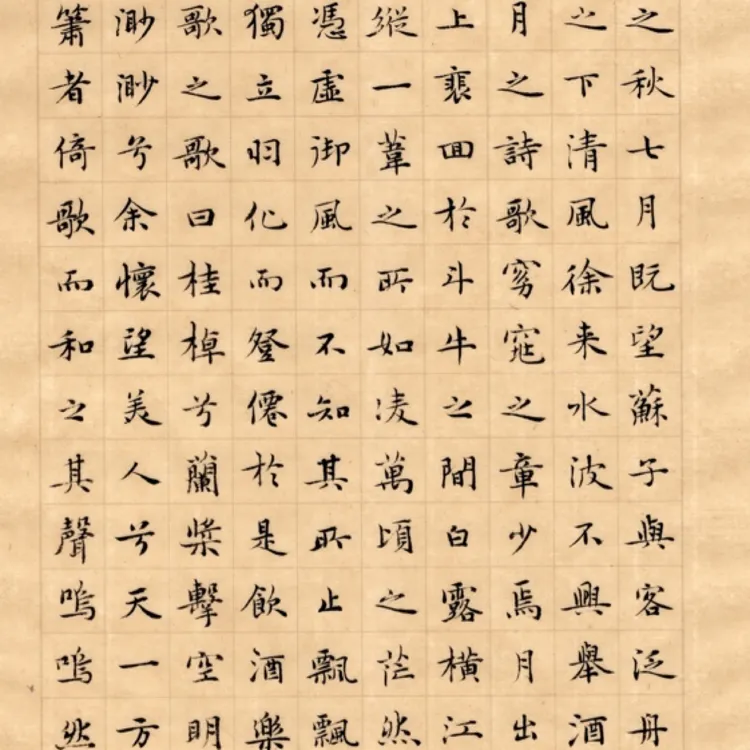 之秋七月既望蘇子與客泛舟
之下清風徐来水波不興舉酒
月之詩歌窈窕之章少焉月出
上裵回於斗牛之間白露橫江
縱一葦之所如凌萬頃之茫然
憑虛御風而不知其所止飄飄
獨立羽化而登僊於是飲酒樂
歌之歌曰桂棹兮蘭槳擊空明
渺渺兮余懷望美人兮天一方
簫者倚歌而和之其聲嗚嗚然